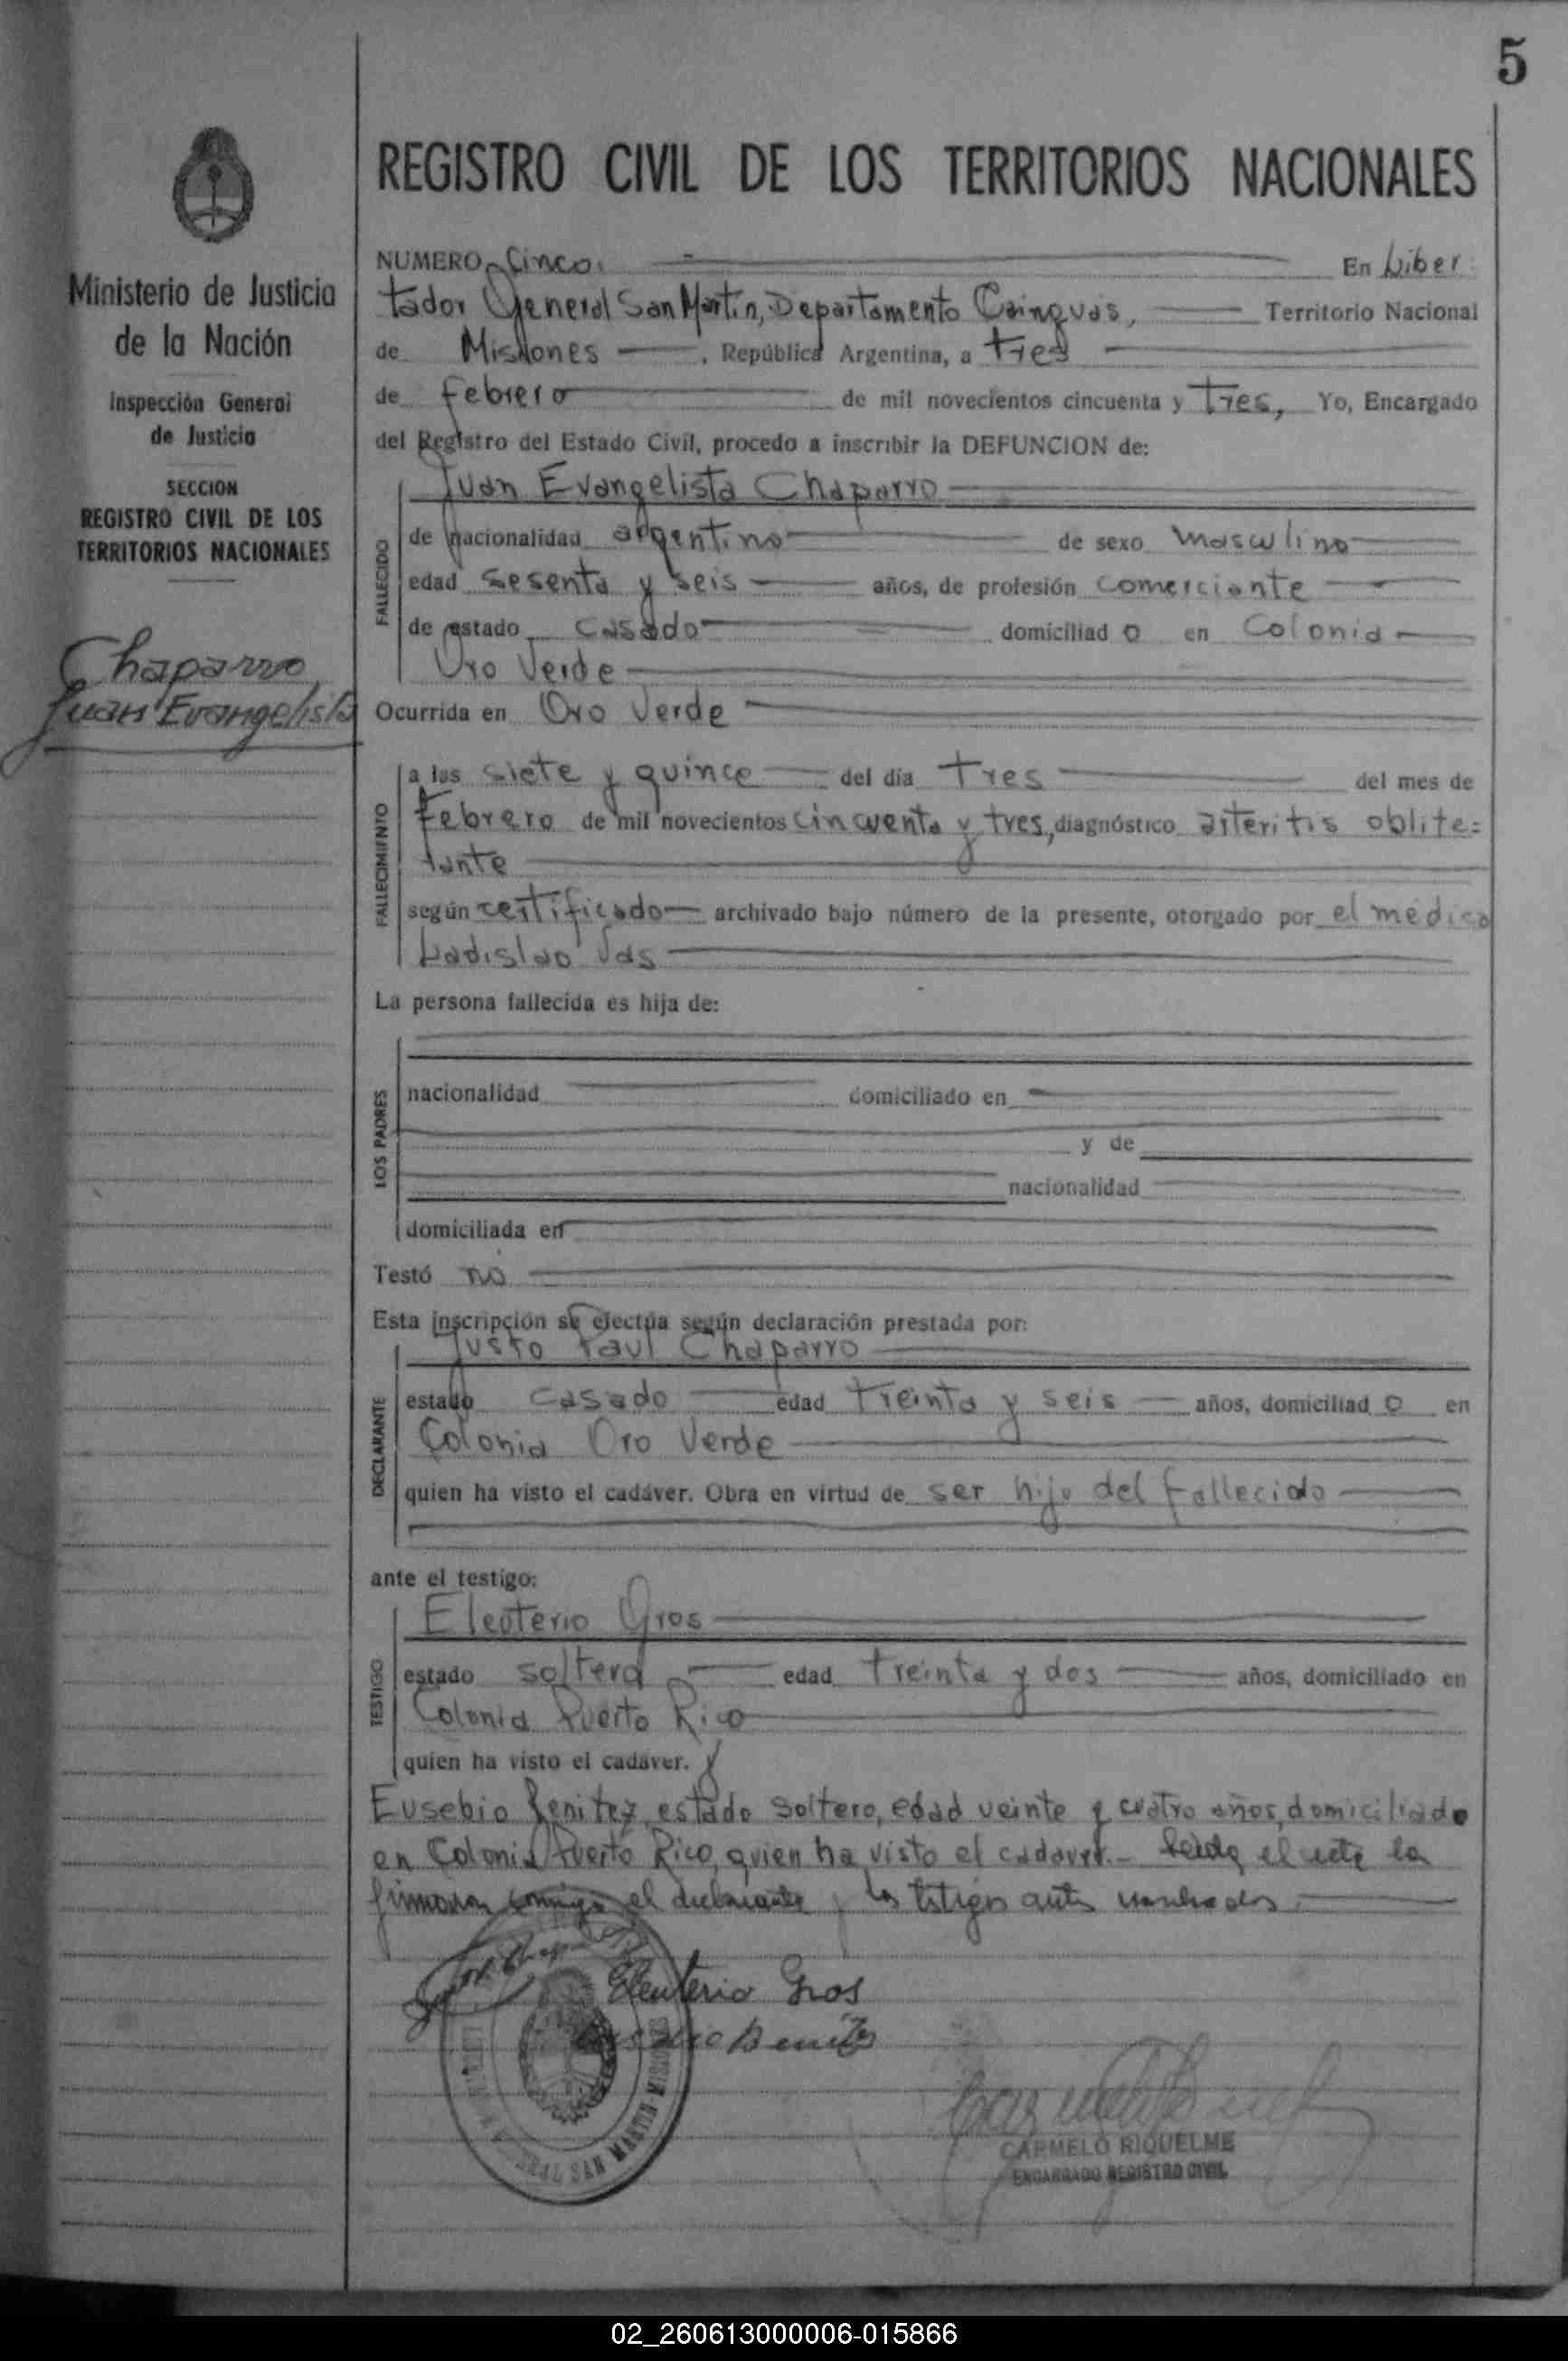 5
REGISTRO CIVIL DE LOS TERRITORIOS NACIONALES
Ministerio de Justicia
de la Nación
Inspección General
de Justicia
SECCION
REGISTRO CIVIL DE LOS
TERRITORIOS NACIONALES
Chaparro
Juan Evangelista
NUMERO Cinco. En Liber=
tador General San Martín, Departamento Cainguás, Territorio Nacional
de Misiones, República Argentina, a tres
de febrero de mil novecientos cincuenta y tres, Yo, Encargado
del Registro del Estado Civil, procedo a inscribir la DEFUNCION de:
FALLECIDO
Juan Evangelista Chaparro
de nacionalidad argentino de sexo masculino
edad sesenta y seis años, de profesión comerciante
de estado casado domiciliado en Colonia
Oro Verde
Ocurrida en Oro Verde
FALLECIMIENTO
a las siete y quince del día tres del mes de
febrero de mil novecientos cincuenta y tres, diagnóstico arteritis oblite=
rante
según certificado archivado bajo número de la presente, otorgado por el médico
Ladislao Vas
La persona fallecida es hija de:
LOS PADRES
nacionalidad domiciliado en
y de
nacionalidad
domiciliada en
Testó no
Esta inscripción se efectúa según declaración prestada por:
DECLARANTE
Justo Paul Chaparro
estado casado edad treinta y seis años, domiciliado en
Colonia Oro Verde
quien ha visto el cadáver. Obra en virtud de ser hijo del fallecido
ante el testigo:
TESTIGO
Eleuterio Gros
estado soltero edad treinta y dos años, domiciliado en
Colonia Puerto Rico
quien ha visto el cadáver. y
Eusebio Benitez, estado soltero, edad veinte y cuatro años, domiciliado
en Colonia Puerto Rico, quien ha visto el cadaver.- Leída el acta la
firmaron conmigo el declarante y los testigos antes nombrados.
Eleuterio Gros
Eusebio Benítez
GENERAL SAN MARTIN - MISIONES
CARMELO RIQUELME
ENCARGADO REGISTRO CIVIL
02_260613000006-015866